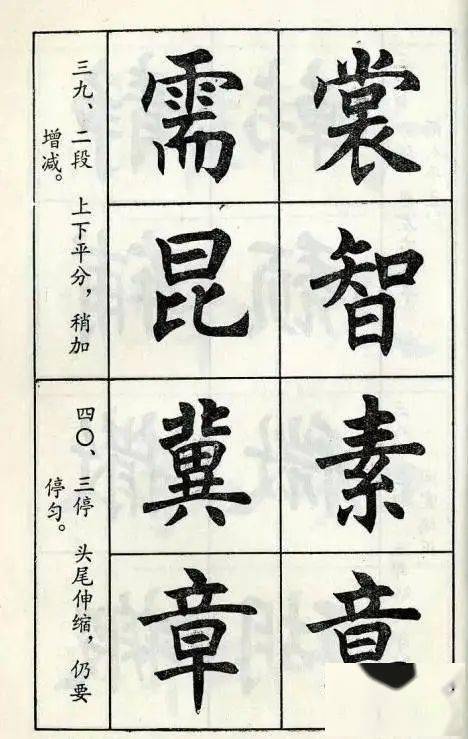 三九、二段 上下平分，稍加
增减。
需 裳
昆 智
四〇、三停 头尾伸缩，仍要
停匀。
冀 素
章